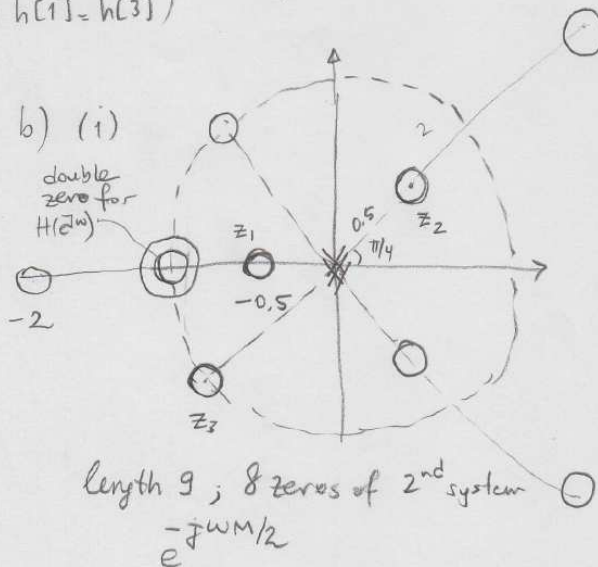 h[1] = h[3] )
b) (i)
double
zero for
H(e^jω)
z₁
2
0,5
z₂
π/4
-2
-0,5
z₃
length 9 ; 8 zeros of 2nd system
e^-jωM/2